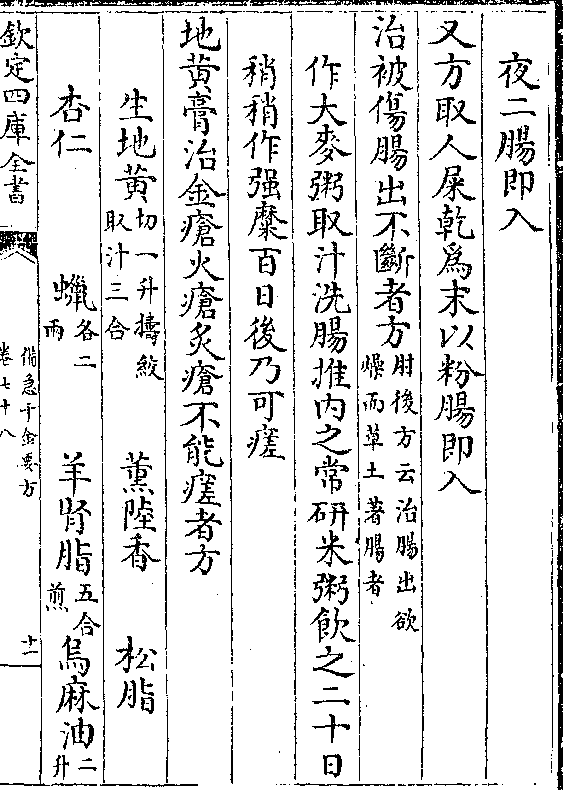 夜二腸即入
又方取人屎乾為末以粉腸即入
治被傷腸出不斷者方肘後方云治腸出欲燥而草土著腸者
作大麥粥取汁洗腸推内之常研米粥飲之二十日
稍稍作强糜百日後乃可瘥
地黄膏治金瘡火瘡炙瘡不能瘥者方
生地黄切一升擣絞取汁三合 薫陸香 松脂
杏仁 蠟各二兩 羊腎脂五合煎 烏麻油二升
欽定四庫全書 備急千金要方 卷七十八 十一